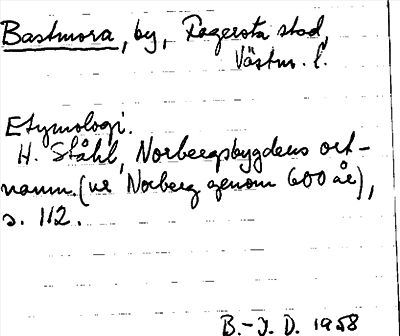 Bastmora, by, Fagersta stad,
Västm. l.
Etymologi.
H. Ståhl, Norbergsbygdens ort-
namn. (ur Norberg genom 600 år),
s. 112.
B.-J. D. 1958